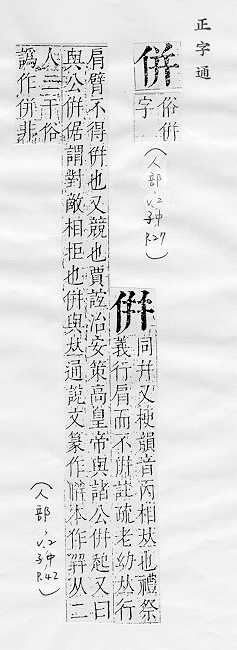 正字通
併
俗倂
字
(人部, v.2
子中
P.27)
倂
同幷又梗韻音丙相𠀤也禮祭
義行肩而不倂註疏老幼𠀤行
肩臂不得倂也又競也賈誼治安策高皇帝與諸公倂起又曰
與公倂倨謂對敵相拒也倂與𠀤通說文篆作本作从二
人干俗
譌作併非
(人部, v.2
子中
P.42)